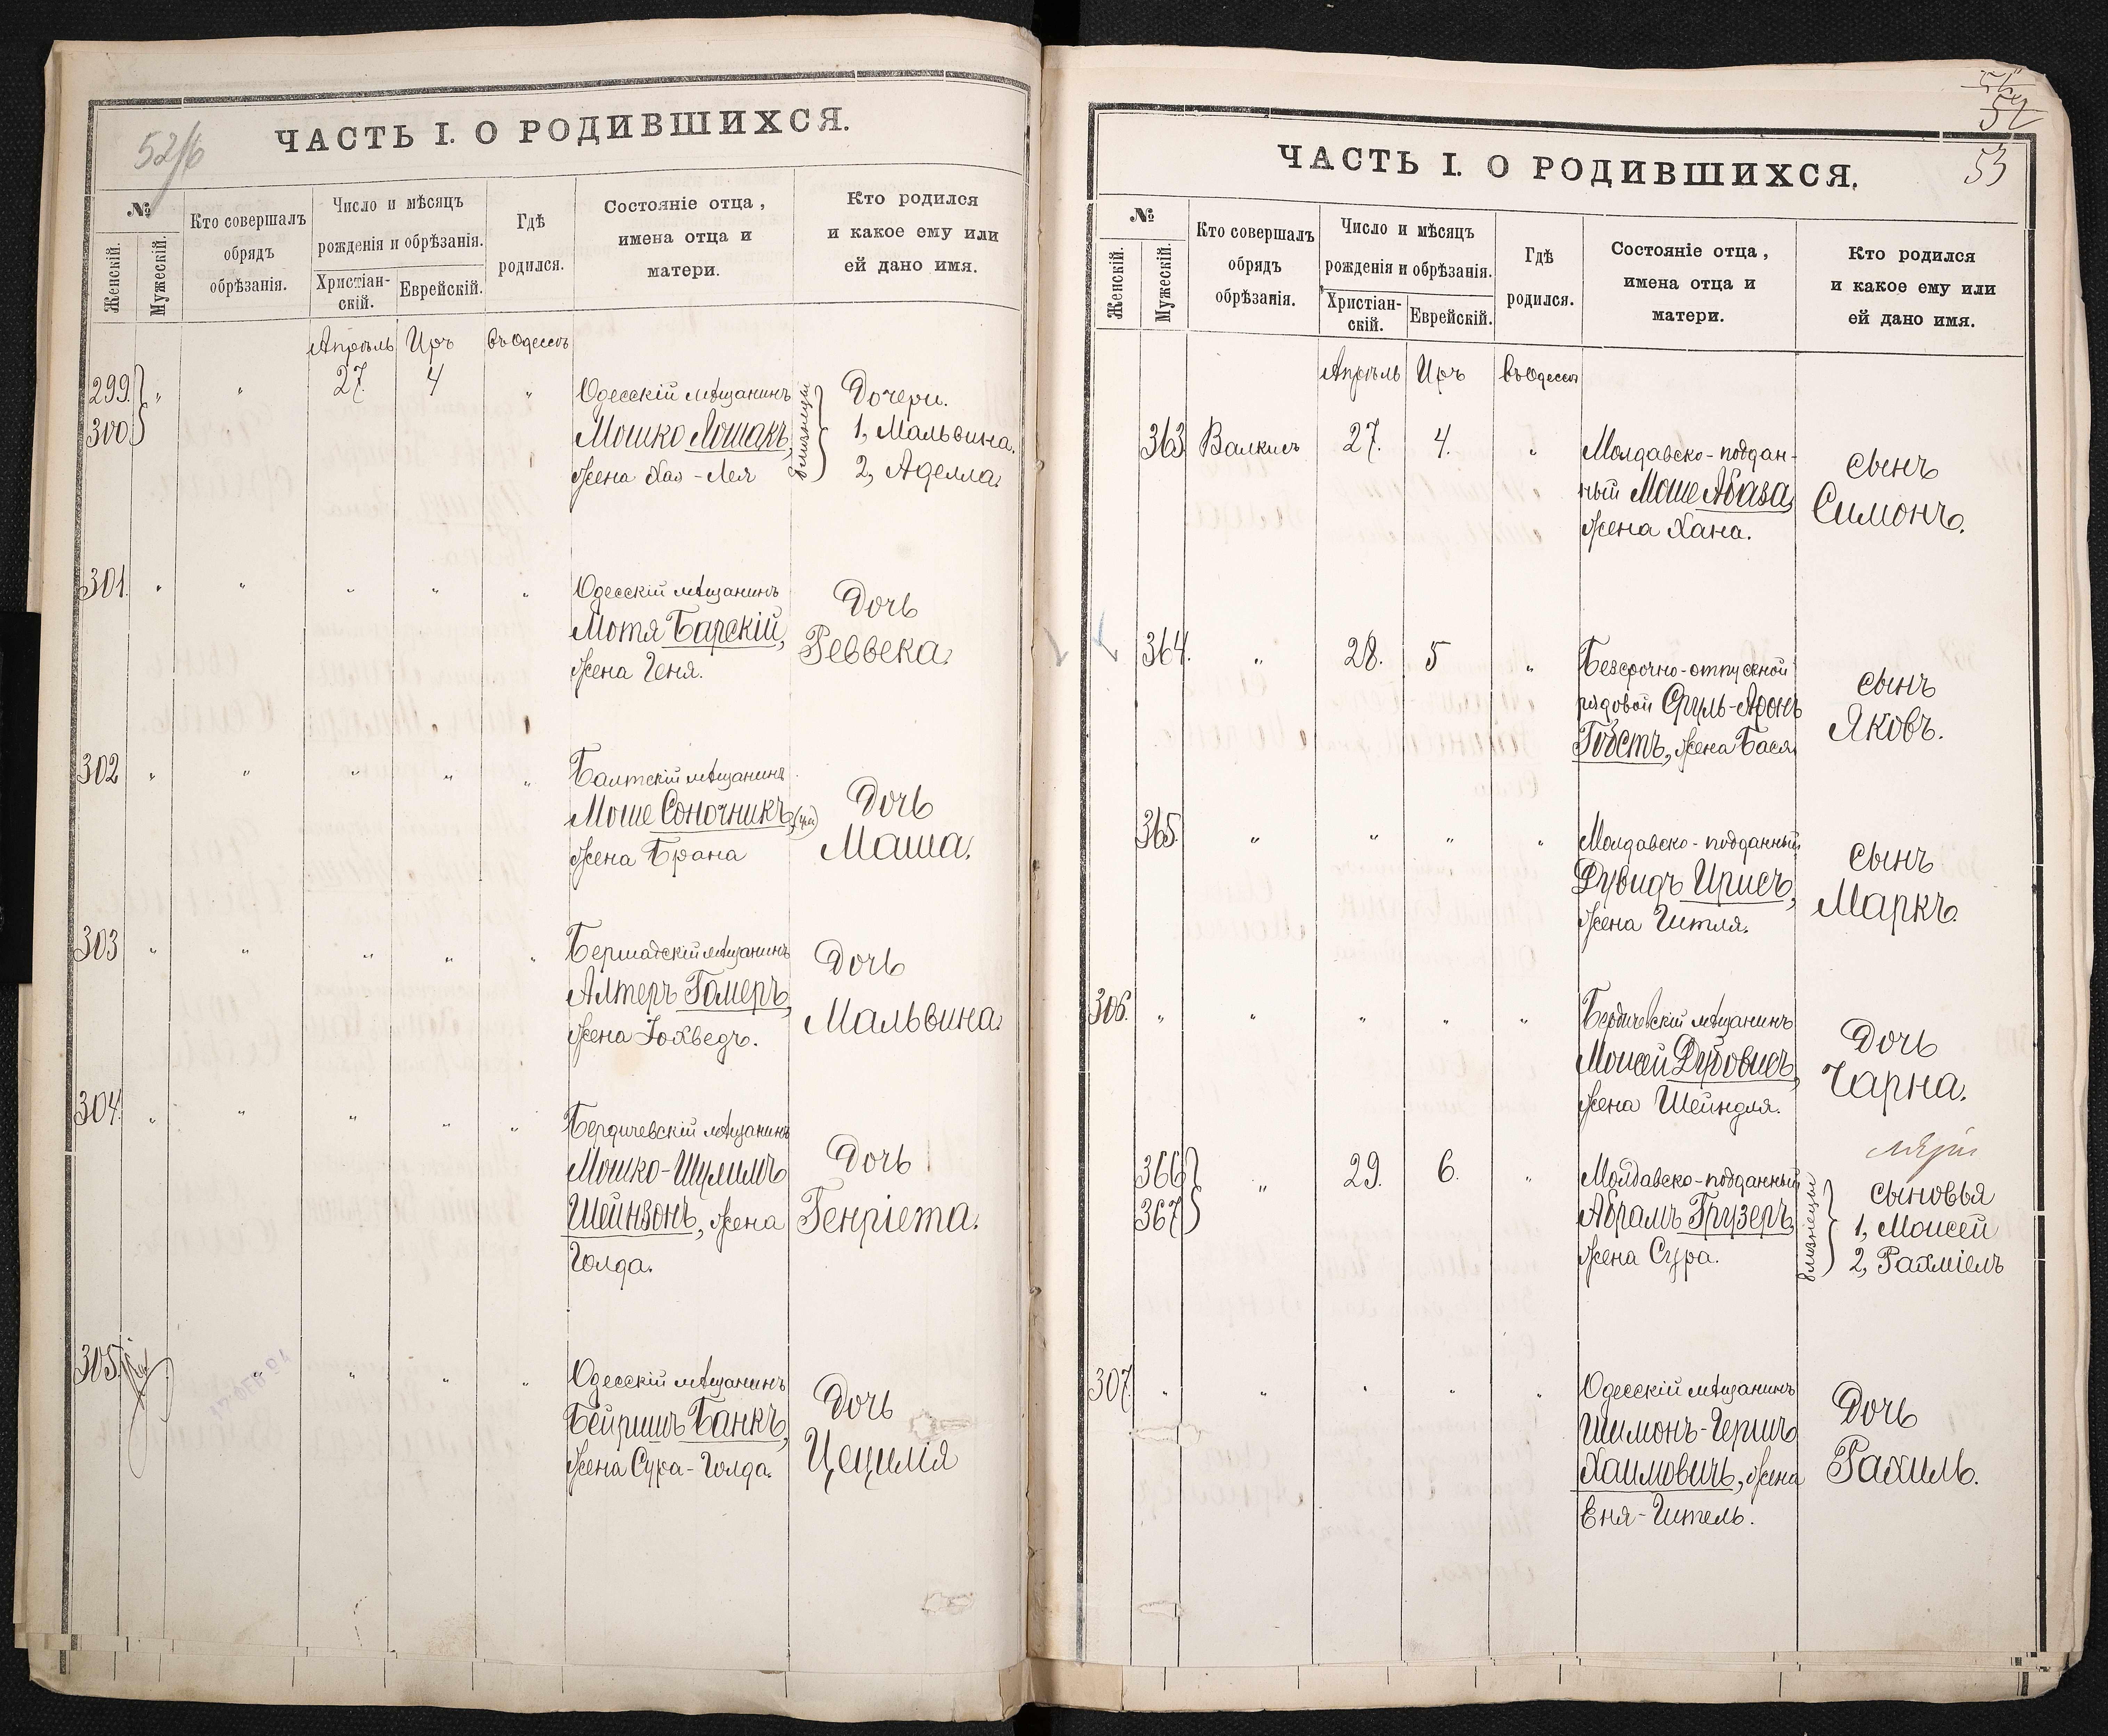 52/б
ЧАСТЬ I. О РОДИВШИХСЯ.
№
Женскій.
Мужескій.
Кто совершалъ
обрядъ
обрѣзанія.
Число и мѣсяцъ
рожденія и обрѣзанія.
Христіан-
скій.
Еврейскій.
Гдѣ
родился.
Состояніе отца,
имена отца и
матери.
Кто родился
и какое ему или
ей дано имя.
Апрѣль Иръ въ Одессѣ
299. " " 27. 4 " Одесскій мѣщанинъ
300 Мошко Лошакъ,
жена Хая-Лея
близнецы
Дочери.
1, Мальвина.
2, Аделла.
301. " " " " " Одесскій мѣщанинъ
Мотя Барскій,
жена Геня.
Дочь
Реввека.
302 " " " " " Балтскій мѣщанинъ
Моше Соночникъ,
жена Брана
Дочь
Маша.
303 " " " " " Бершадскій мѣщанинъ
Алтеръ Гомеръ,
жена Іохведъ.
Дочь
Мальвина.
304. " " " " " Бердичевскій мѣщанинъ
Мошко-Шулимъ
Шейнзонъ, жена
Голда.
Дочь
Генріета.
305. " " " " Одесскій мѣщанинъ
Бейришъ Банкъ,
жена Сура-Голда.
Дочь
Цецилія
52
53
ЧАСТЬ I. О РОДИВШИХСЯ.
№
Женскій.
Мужескій.
Кто совершалъ
обрядъ
обрѣзанія.
Число и мѣсяцъ
рожденія и обрѣзанія.
Христіан-
скій.
Еврейскій.
Гдѣ
родился.
Состояніе отца,
имена отца и
матери.
Кто родился
и какое ему или
ей дано имя.
Апрѣль Иръ въ Одессѣ
363 Валкисъ 27. 4. " Молдавско-поддан-
ный Моше Абаза,
жена Хана.
сынъ
Симонъ.
364. " 28. 5 " Безсрочно-отпускной
рядовой Сруль-Аронъ
Гобстъ, жена Бася
сынъ
Яковъ.
365. " " " " Молдавско-подданный
Дувидъ Ирисъ,
жена Гитля.
сынъ
Маркъ.
306. " " " " " Бердичевскій мѣщанинъ
Моисей Дубовисъ,
жена Шейндля.
Дочь
Чарна.
366 " 29. 6. " Молдавско-подданный
367 Абрамъ Грузеръ,
жена Сура.
близнецы
сыновья
1, Моисей
2, Рахміелъ
307. " " " " " Одесскій мѣщанинъ
Шимонъ-Гершъ
Хаимовичъ, жена
Еня-Гитель.
Дочь
Рахиль.